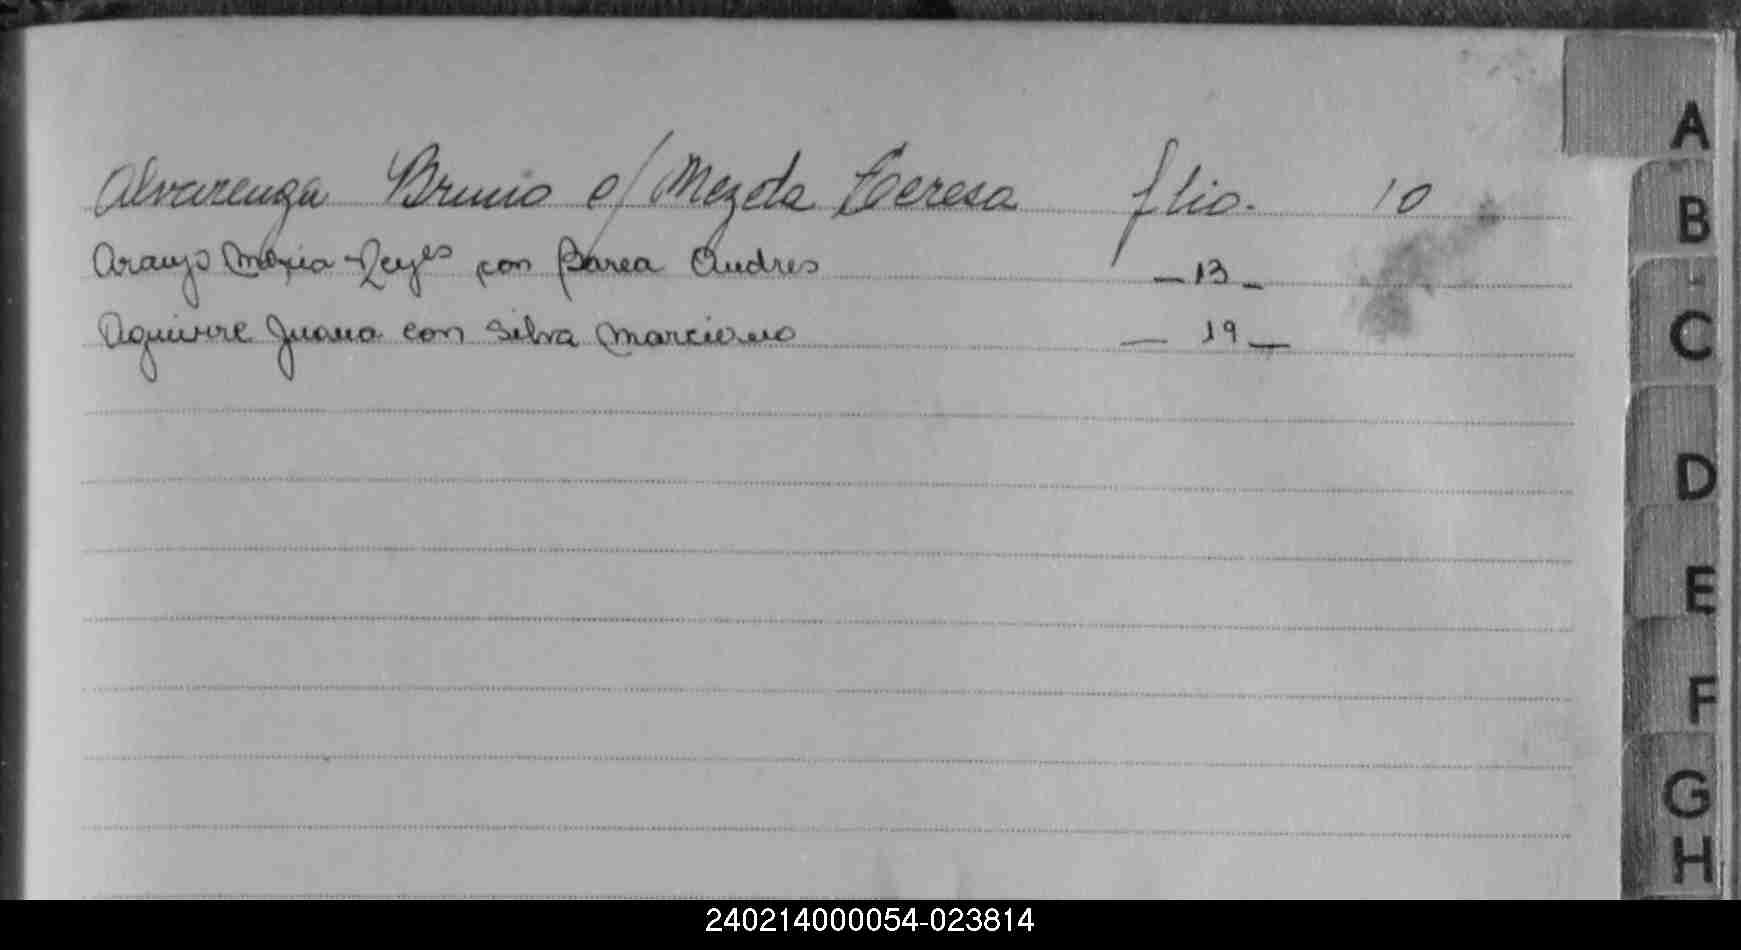 Alvarenga Bruno c/ Mezda Teresa flio. 10
Araujo Maria Reyes con Barea Andres — 13 —
Aguirre Juana con Silva Marciano — 19 —
A
B
C
D
E
F
G
H
240214000054-023814